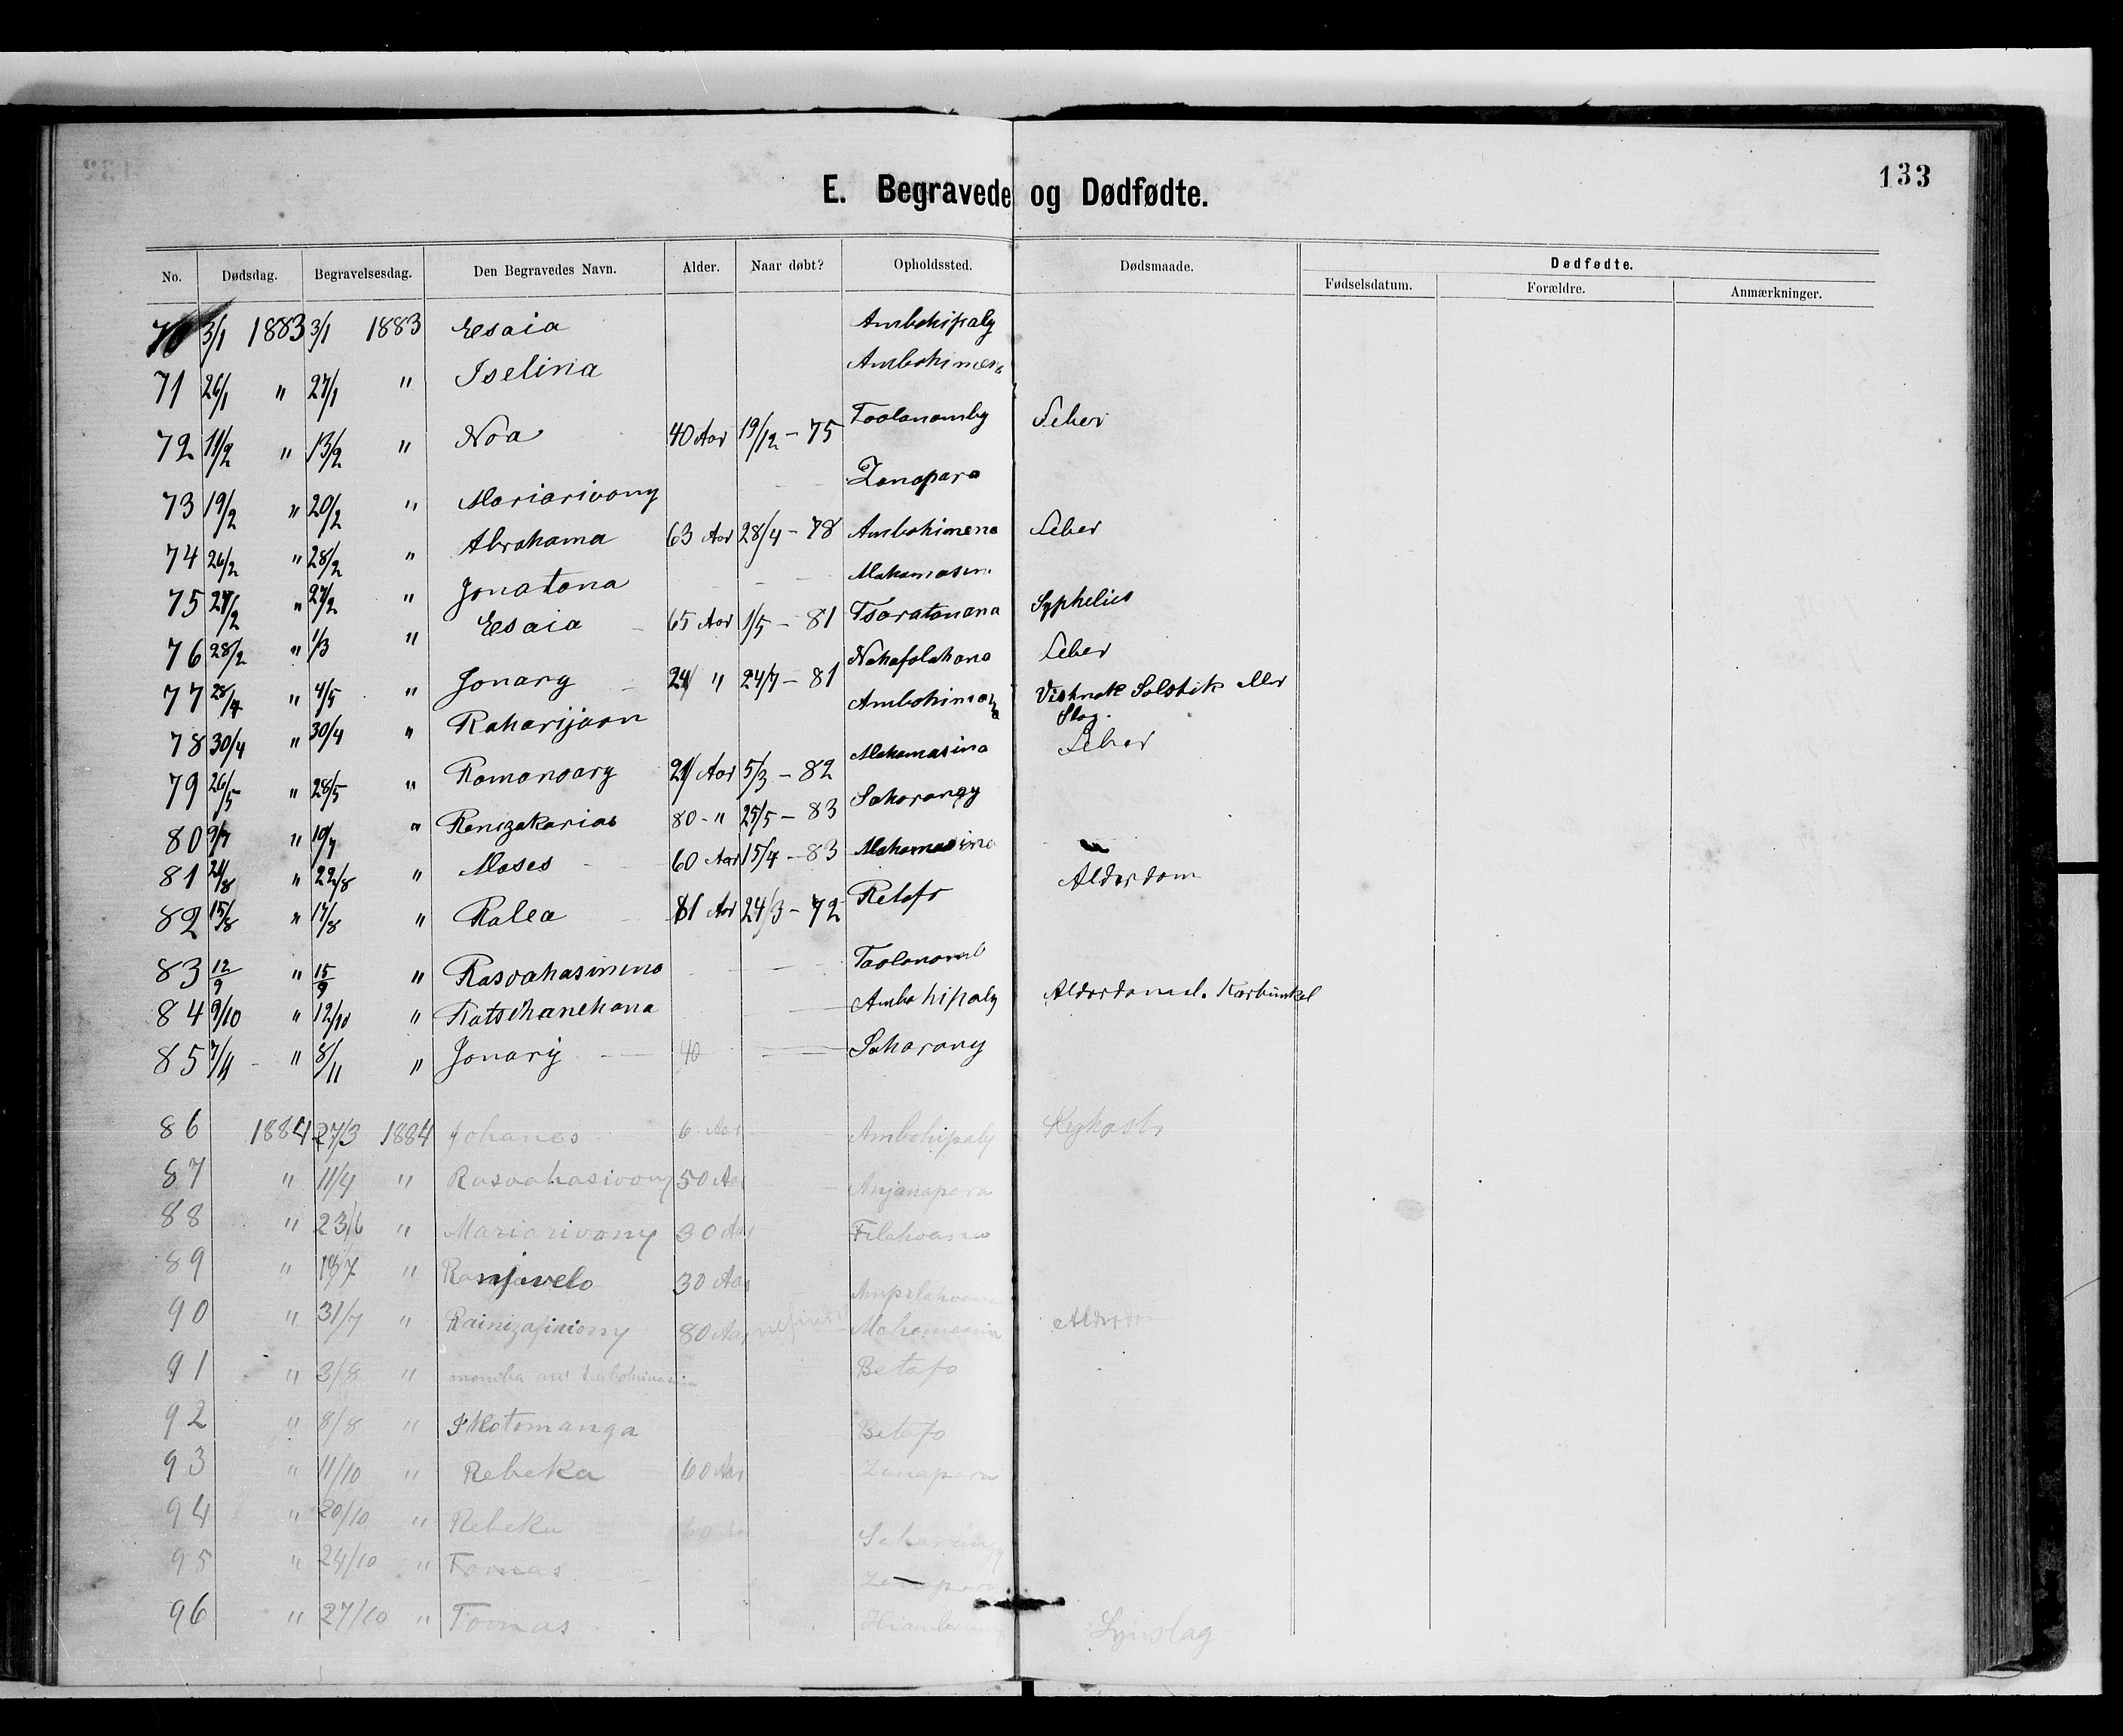 133
E. Begravede og Dødfødte.
No. Dødsdag. Begravelsesdag. Den Begravedes Navn. Alder. Naar døbt? Opholdssted. Dødsmaade. Dødfødte.
Fødselsdatum. Forældre. Anmærkninger.
70 3/1 1883 3/1 1883 Esaia Ambohipaly
71 26/1 " 27/1 " Iselina Ambohimena
72 11/2 " 13/2 " Noa 40 Aar 19/12 - 75 Taolanomby Feber
73 19/2 " 20/2 " Mariarivony Zanapara
74 26/2 " 28/2 " Abrahama 63 Aar 28/4 - 78 Ambohimena Feber
75 27/2 " 27/2 " Jonatana Mahamasin
76 28/2 " 1/3 " Esaia 65 Aar 1/5 - 81 Tsaratanana Syphelies
77 28/4 " 4/5 " Jonary 24 " 24/7 - 81 Nahafalahana Feber
78 30/4 " 30/4 " Raharijaon Ambohimanga Vistnok Solstik eller Slag.
79 26/5 " 28/5 " Ramanoary 21 Aar 5/3 - 82 Mahamasina Feber
80 9/7 " 10/7 " Renizakarias 80 - " 25/5 - 83 Saharangy
81 21/8 " 22/8 " Moses 60 Aar 15/4 - 83 Mahamasina
82 15/8 " 17/8 " Ralea 81 Aar 24/3 - 72 Betafo Alderdom
83 12/9 " 15/9 " Rasoahasinina Taolanomb
84 9/10 " 12/10 " Ratsihanehana Ambohipaly Alderdomsl. Karbunkel
85 7/11 " 8/11 " Jonary 40 Saharany
86 1884 27/3 1884 Johanes 6 Aar Ambohipaly
87 " 11/4 " Rasoahasivony 50 Aar Anjanapara
88 " 23/6 " Mariarivony 30 Aar Filahoana
89 " 19/7 " Ranjivelo 30 Aar
90 " 31/7 " Rainizafiniony 80 Aar Mahamasina Alderdom
91 " 3/8 " Betafo
92 " 8/8 " Ikotomanga Betafo
93 " 11/10 " Rebeka 60 Aar Zanapara
94 " 20/10 " Rebeka 60 Aar Saharangy
95 " 24/10 " Tomas Zanapara
96 " 27/10 " Tomas